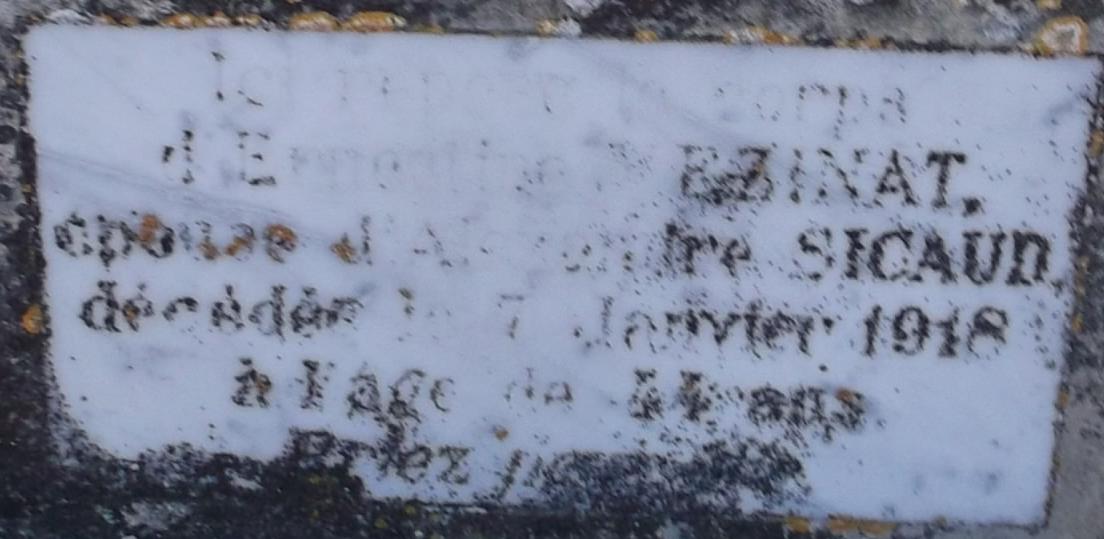 Ici repose le corps
d'Ernestine BEZINAT,
épouse d'Alexandre SICAUD,
décédée le 7 Janvier 1918
à l'âge de 44 ans
Priez pour